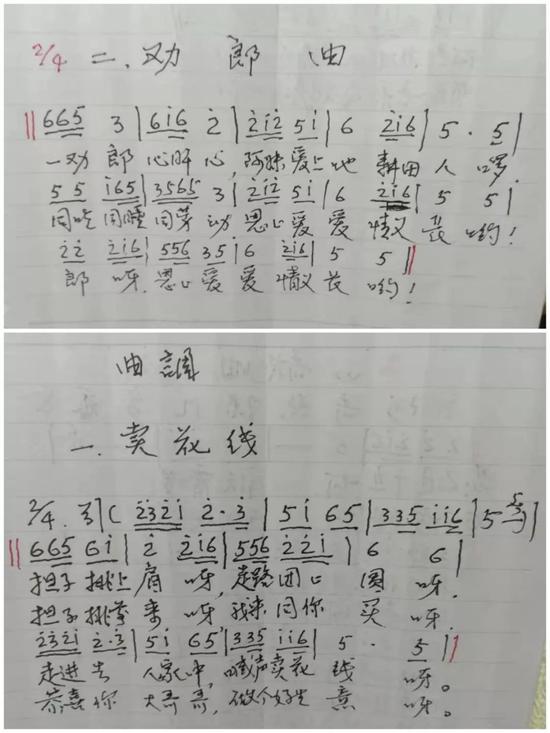 2/4 二、劝郎曲
‖665 3|6i6 2̇|2̇i2̇ 5i|6 2̇i6|5 · 5|
一劝郎心肝心,阿妹爱上地耕田人啰
55 i65|3565 3|2̇i2̇ 5i|6 2̇i6|5 5|
同吃同睡同劳动恩恩爱爱情义长哟!
2̇2̇ 2̇i6|556 35|6 2̇i6|5 5‖
郎呀,恩恩爱爱情义长哟!
曲調
一、卖花线
2/4 (2̇3̇2̇i 2̇·3̇|5i 65|335 ii6|5
‖665 6i|2̇ 2̇i6|556 2̇2̇i|6 6|
担子挑上肩呀,走路团口圆呀,
担子挑拿来呀,我来同你买呀,
2̇3̇2̇i 2̇·3̇|5i 65|335 ii6|5 · 5‖
走进去人家中,喊声卖花线呀。
恭喜你大哥哥,做个好生意呀。